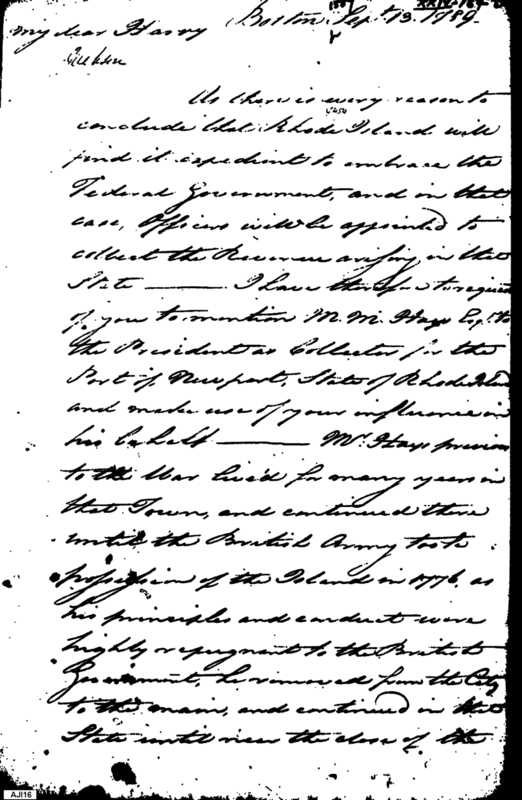 Boston Sept. 13. 1789.
my dear Harry
As there is every reason to
conclude that Rhode Island will
find it expedient to embrace the
Federal Government, and in that
case, Officers will be appointed to
collect the Revenue arising in that
State — I have therefore to request
of you to mention M. M. Hays Esqr. to
the President as Collector for the
Port of Newport, State of Rhode Island
and make use of your influence in
his behalf — Mr. Hays previous
to the War lived for many years in
that Town, and continued there
until the British Army took
possession of the Island in 1776, as
his principles and conduct were
highly repugnant to the British
Government, he removed from the City
to the main, and continued in that
State until near the close of the
AJI16